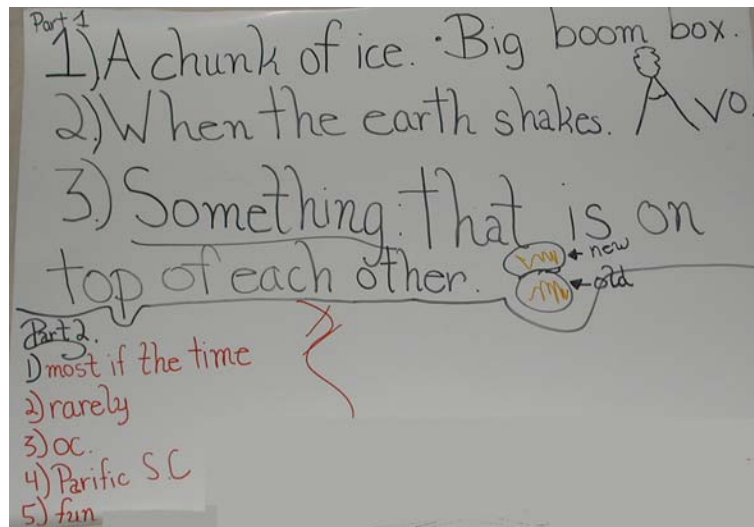 Part 1
1) A chunk of ice. · Big boom box.
2.) When the earth shakes. A vo.
3.) Something that is on
top of each other.
new
old
Part 2.
1) most if the time
2) rarely
3) oc.
4) Parific S.C
5) fun